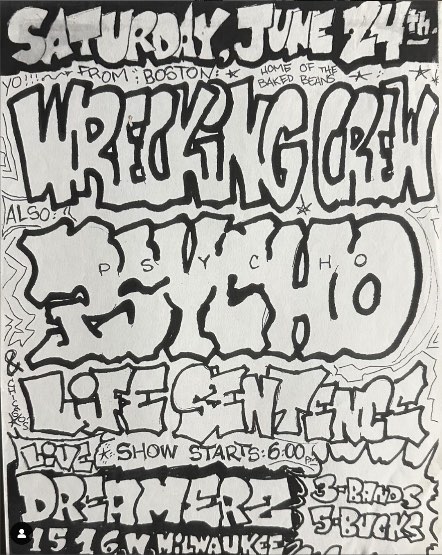 SATURDAY, JUNE 24th.
YO!!! FROM: BOSTON: HOME OF THE
BAKED BEANS
WRECKING CREW
ALSO:
PSYCHO
P S Y C H O
&
LIFE SENTENCE
LIVE SHOW STARTS: 6:00
DREAMERZ
3-BANDS
5-BUCKS
1516 W. MILWAUKEE